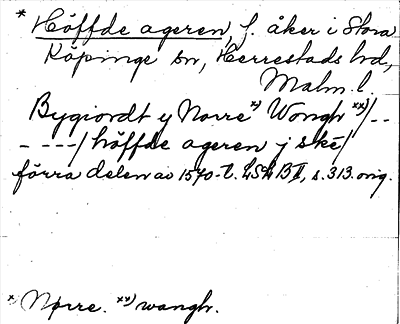 * Höffde ageren, f. åker i Stora
Köpinge sn, Herrestads hd,
Malm. l.
Bygiordt y Norre *) Wongh **)/--
----/ höffde ageren j ske/
förra delen av 1570-t. LSLB II, s. 313. orig.
*) Nørre. **) wangh.